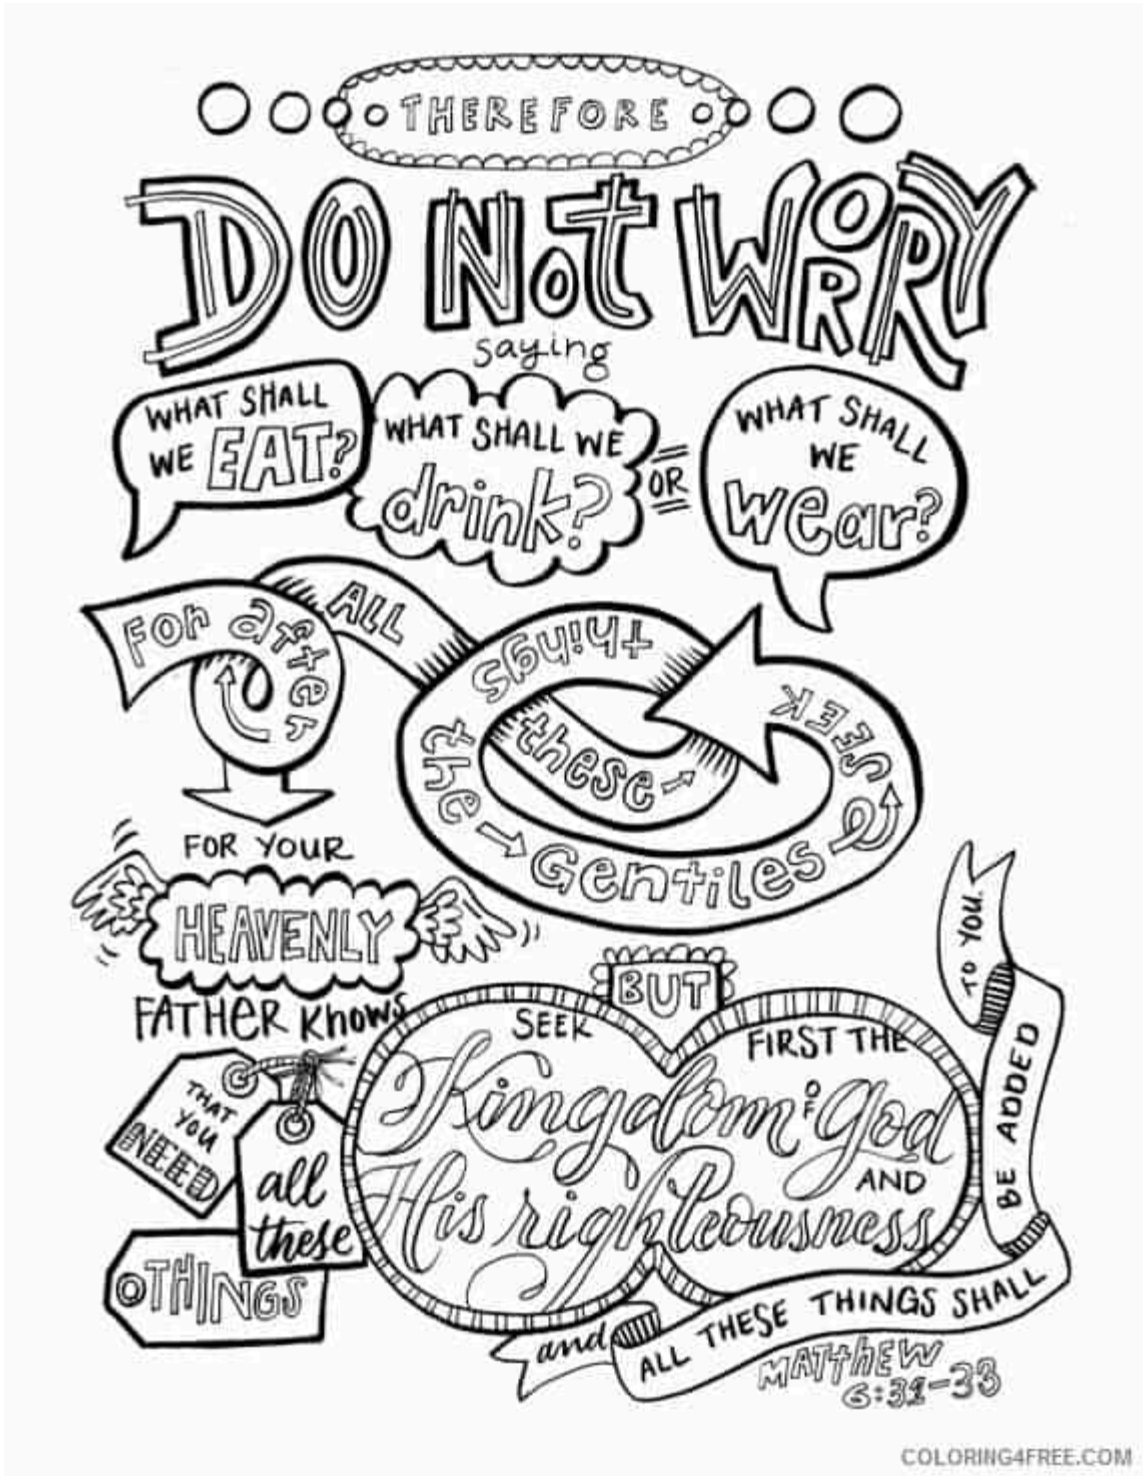 THEREFORE
DO NOt WORRY
saying
WHAT SHALL
WE EAT?
WHAT SHALL WE
drink?
OR
WHAT SHALL
WE
wear?
For after
ALL
these
things
the Gentiles
SEEK
FOR YOUR
HEAVENLY
FATHER Knows
THAT
YOU
NEED
all
these
THINGS
BUT
SEEK
FIRST THE
Kingdom OF God
AND
His righteousness
and
ALL THESE THINGS SHALL
BE ADDED
TO YOU.
MATTHEW
6:31-33
COLORING4FREE.COM